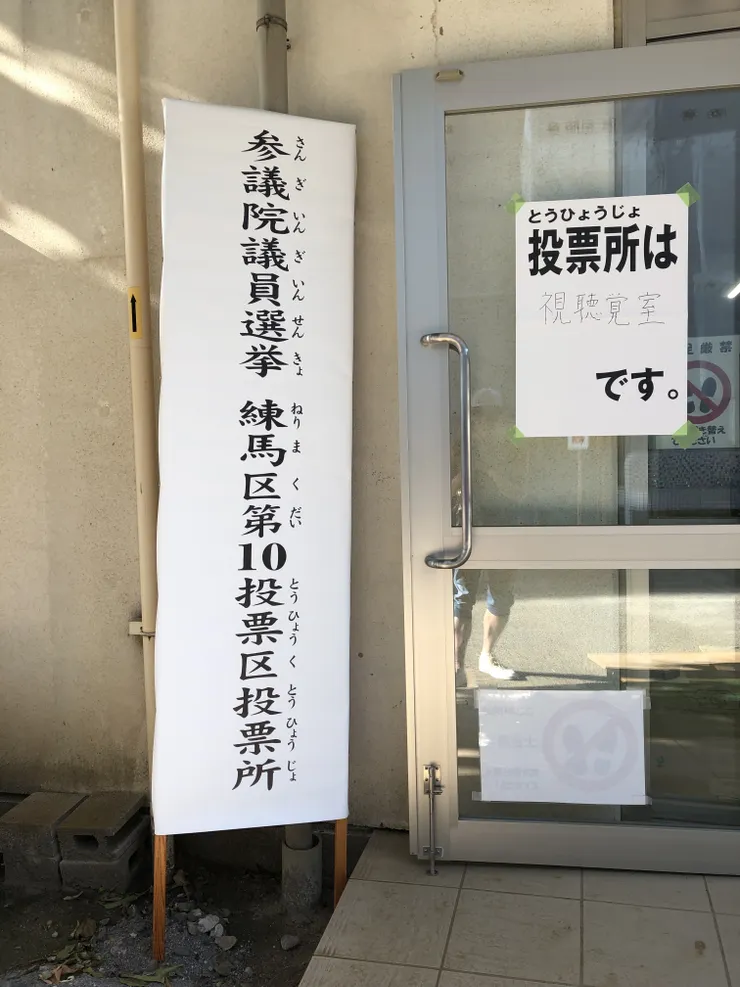 参議院議員選挙 練馬区第10投票区投票所
さんぎいんぎいんせんきょ ねりまくだい とうひょうくとうひょうじょ
とうひょうじょ
投票所は
視聴覚室
です。
足厳禁
き替え
ださい